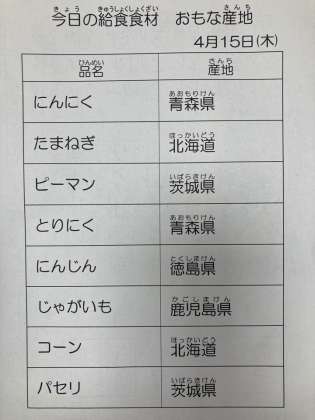 今日の給食食材 おもな産地
4月15日(木)
品名 産地
にんにく 青森県
たまねぎ 北海道
ピーマン 茨城県
とりにく 青森県
にんじん 徳島県
じゃがいも 鹿児島県
コーン 北海道
パセリ 茨城県